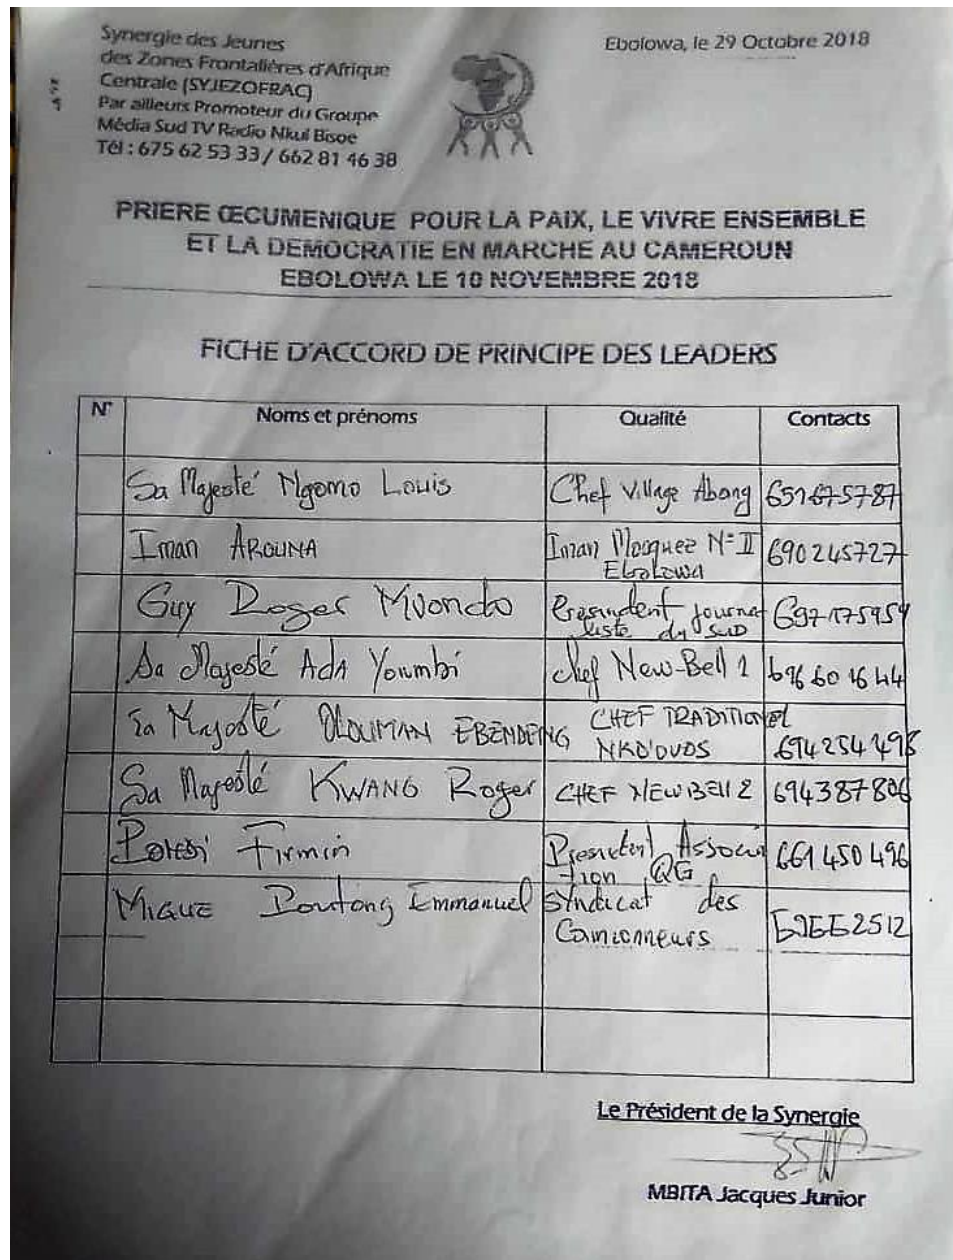 Synergie des Jeunes
des Zones Frontalières d'Afrique
Centrale (SYJEZOFRAC)
Par ailleurs Promoteur du Groupe
Média Sud TV Radio Nkul Bisoe
Tél : 675 62 53 33 / 662 81 46 38
Ebolowa, le 29 Octobre 2018
PRIERE ŒCUMENIQUE POUR LA PAIX, LE VIVRE ENSEMBLE
ET LA DEMOCRATIE EN MARCHE AU CAMEROUN
EBOLOWA LE 10 NOVEMBRE 2018
FICHE D'ACCORD DE PRINCIPE DES LEADERS
N° Noms et prénoms Qualité Contacts
Sa Majesté Ngomo Louis Chef Village Abang 651675787
Iman AROUNA Iman Mosquez N=II 690245727
Ebolowa
Guy Roger Mvondo Presindent journa 697175954
liste du SUD
Sa Majesté Ada Youmbi chef New-Bell 1 696 60 16 44
Sa Majesté OLOUMAN EBENDENG CHEF TRADITIONEL
NKO'OVOS 694254498
Sa Majesté KWANG Roger CHEF NEWBELL 2 694387806
Firmin President Associa 661 450 496
tion QG
Emmanuel Syndicat des
Camionneurs
Le Président de la Synergie
MBITA Jacques Junior